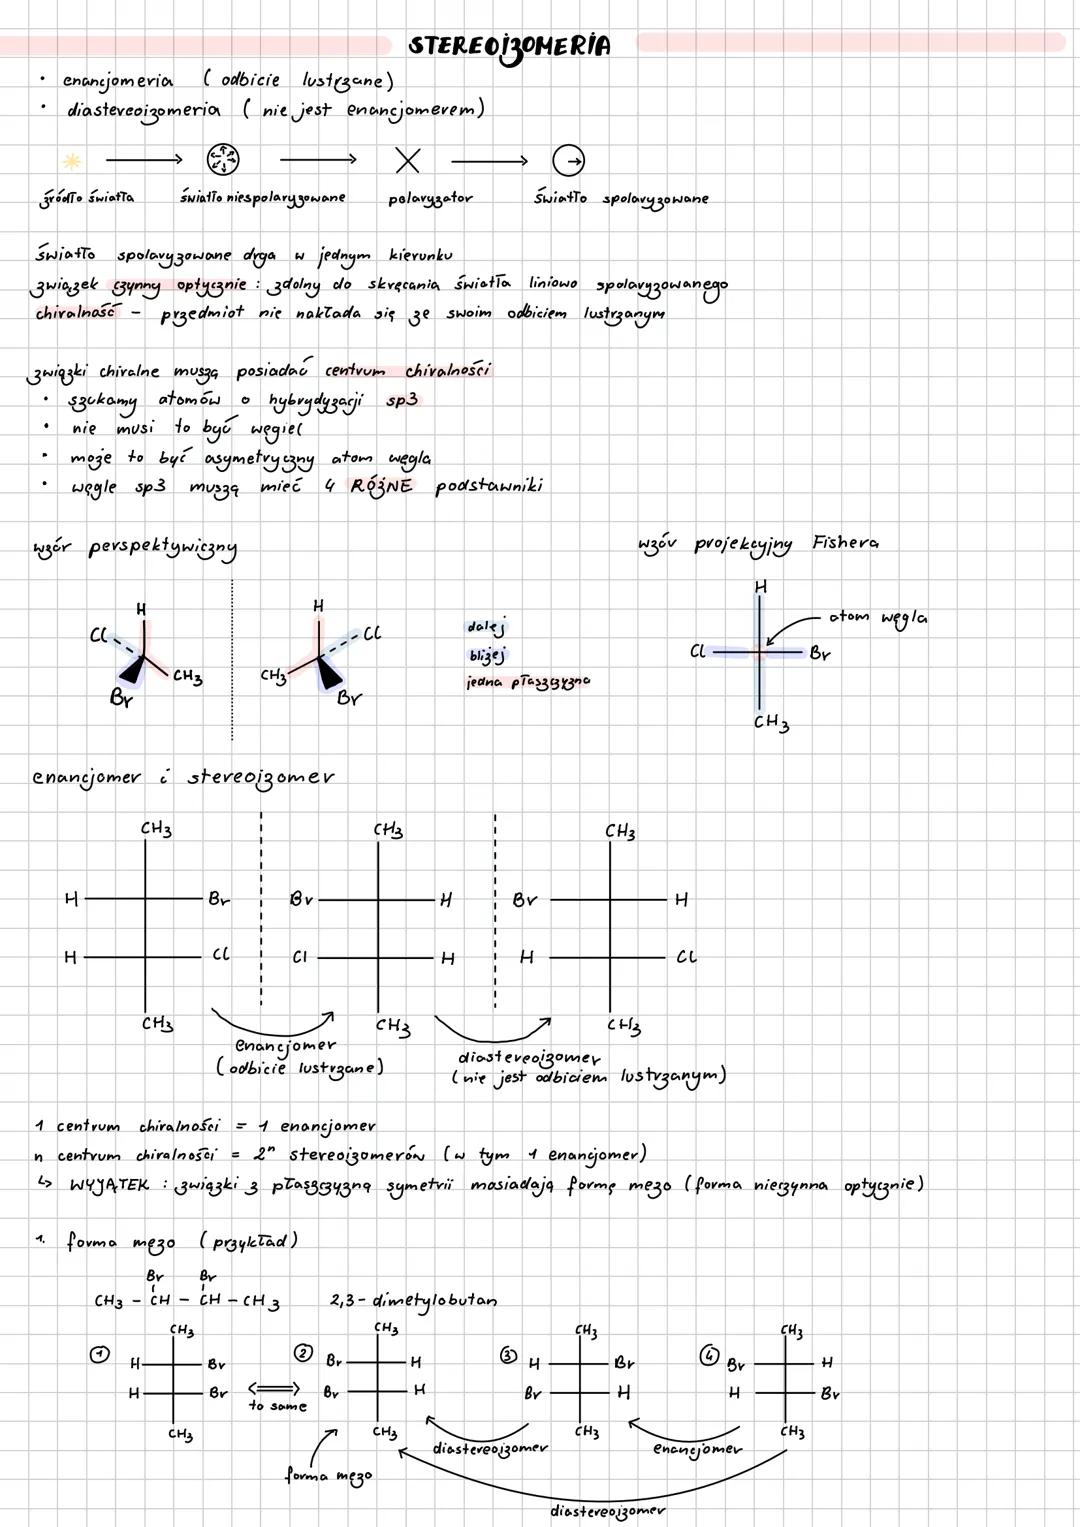 STEREOIZOMERIA
• enancjomeria ( odbicie lustrzane)
• diastereoizomeria ( nie jest enancjomerem)
źródło światła światło niespolaryzowane polaryzator światło spolaryzowane
światło spolaryzowane drga w jednym kierunku
związek czynny optycznie : zdolny do skręcania światła liniowo spolaryzowanego
chiralność - przedmiot nie nakłada się ze swoim odbiciem lustrzanym
związki chiralne muszą posiadać centrum chiralności
• szukamy atomów o hybrydyzacji sp3
• nie musi to być węgiel
• może to być asymetryczny atom węgla
• węgle sp3 muszą mieć 4 RÓŻNE podstawniki
wzór perspektywiczny wzór projekcyjny Fishera
H H H
Cl Cl dalej atom węgla
bliżej Cl Br
CH3 CH3 jedna płaszczyzna
Br Br CH3
enancjomer i stereoizomer
CH3 CH3 CH3
H Br Br H Br H
H Cl Cl H H Cl
CH3 CH3 CH3
enancjomer
( odbicie lustrzane)
diastereoizomer
( nie jest odbiciem lustrzanym)
1 centrum chiralności = 1 enancjomer
n centrum chiralności = 2ⁿ stereoizomerów ( w tym 1 enancjomer)
↳ WYJĄTEK : związki z płaszczyzną symetrii mosiadają formę mezo ( forma nieczynna optycznie)
1. forma mezo ( przykład)
Br Br
CH3 - CH - CH - CH3 2,3- dimetylobutan
CH3 CH3 CH3 CH3
① H Br ② Br H ③ H Br ④ Br H
H Br Br H Br H H Br
to samo
CH3 CH3 CH3 CH3
diastereoizomer enancjomer
forma mezo
diastereoizomer